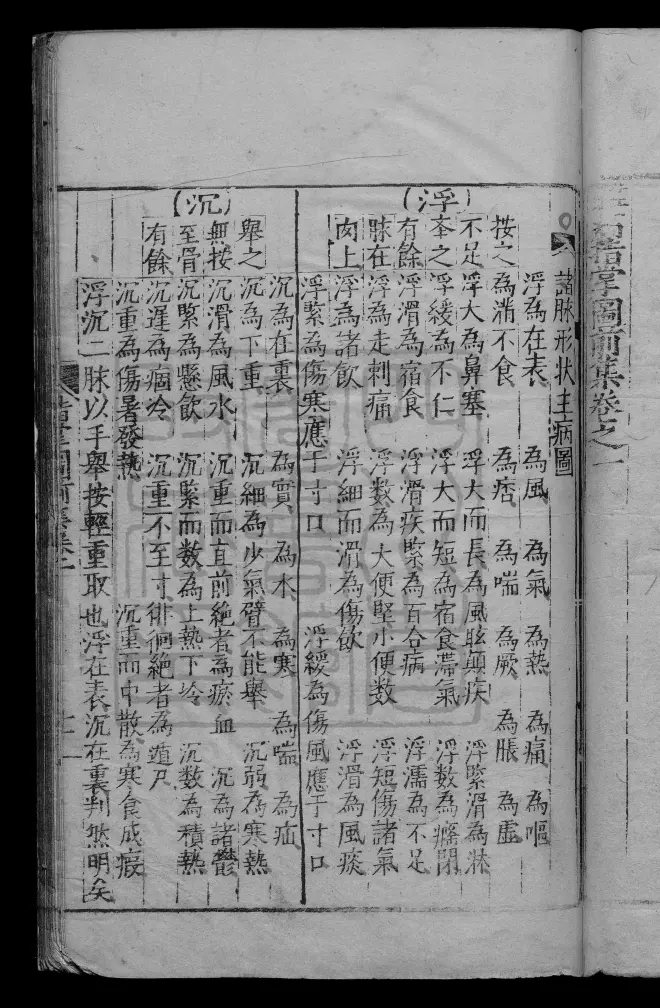 諸脉形状主病圖
(浮)
按之不足
舉之有餘
脉在肉上
浮為在表 為風 為氣 為熱 為痛 為嘔
為滿不食 為痞 為喘 為厥 為脹 為虛
浮大為鼻塞 浮大而長為風眩顛疾 浮緊滑為淋
浮緩為不仁 浮大而短為宿食滯氣 浮数為癃閉
浮滑為宿食 浮滑疾緊為百合病 浮濡為不足
浮為走刺痛 浮数為大便堅小便数 浮短傷諸氣
浮為諸飲 浮細而滑為傷飲 浮滑為風痰
浮緊為傷寒應于寸口 浮緩為傷風應于寸口
(沉)
舉之無
按至骨
有餘
沉為在裏 為實 為水 為寒 為喘 為疝
沉為下重 沉細為少氣臂不能舉 沉弱為寒熱
沉滑為風水 沉重而直前絶者為瘀血 沉為諸鬱
沉緊為懸飲 沉緊而数為上熱下冷 沉数為積熱
沉遲為痼冷 沉重不至寸徘徊絶者為遁尸
沉重為傷暑發熱 沉重而中散為寒食成瘕
浮沉二脉以手舉按輕重取也浮在表沉在裏判然明矣
指掌圖前集卷一
指掌圖前集卷之一